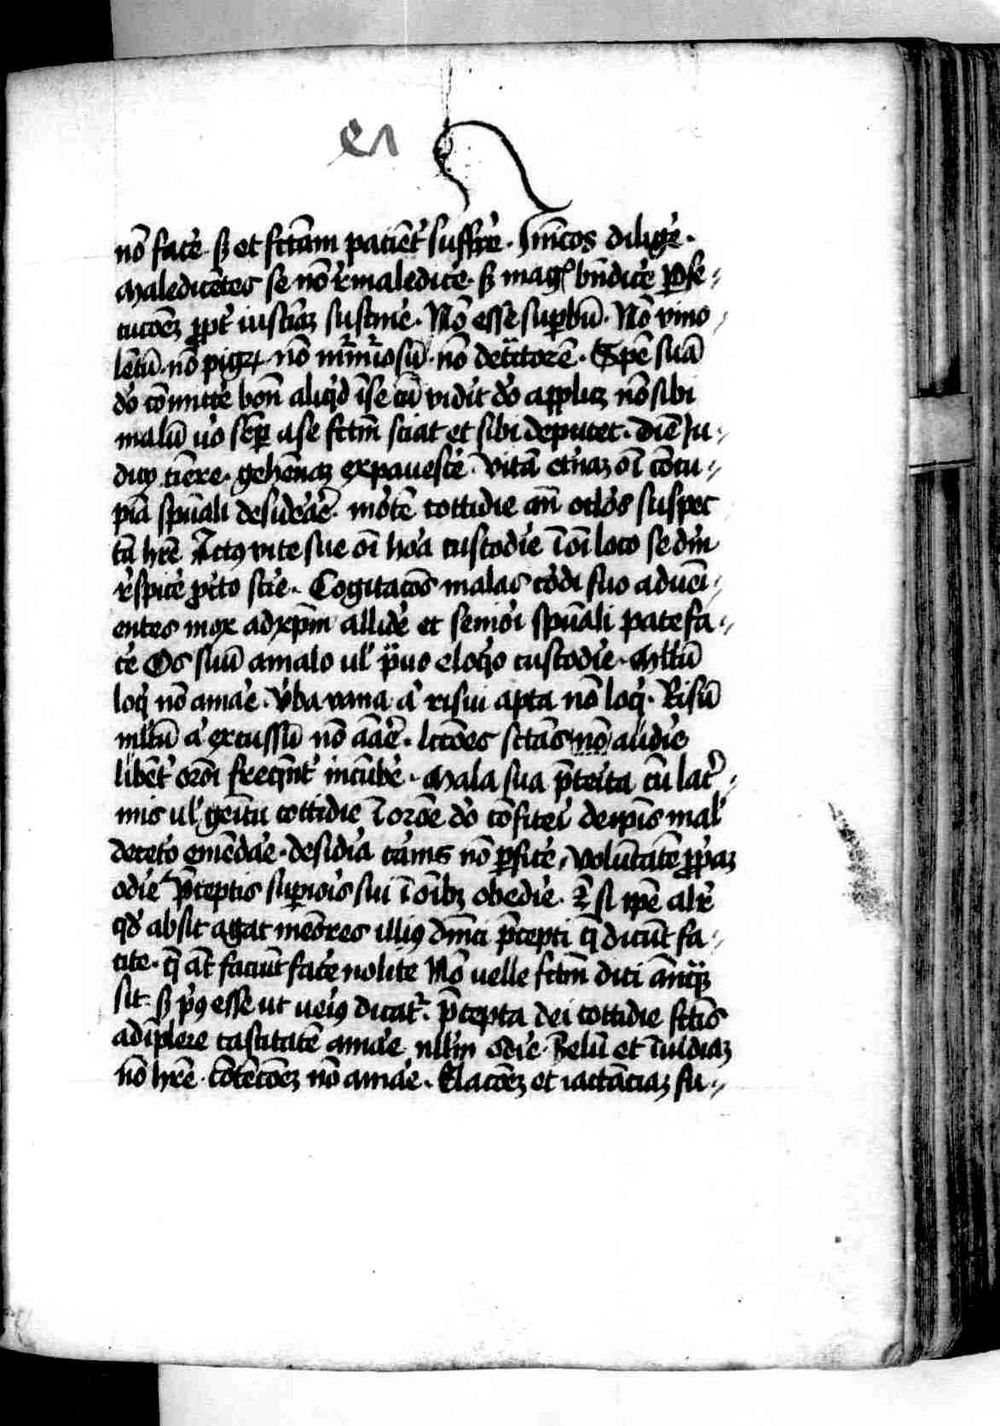 nō fac̄e · ſꝫ et fc̄tam pacien̄t ſuffr̄re · Inīcos dilig̃e ·
Maledicētes ſe nō r̄maledic̄e · ſꝫ mag̃ bn̄dic̄e ꝑſe-
cucōeꝫ ꝓpt̄ iuſticiaꝫ ſuſtin̄e · Nō eſſe ſuꝑbū · Nō vino
lētū · nō pigꝝ nō mr̄mr̄oſū · nō det̃ctorē · Spē ſuā
d̄o cōmitt̄e bonū aliq̇d ī ſe cū vid̄it d̄o applicꝫ nō ſibi
malū u̇o ſēꝑ a ſe fc̄tm̄ ſciat et ſibi deputet · Diē Iu-
dicij tīere · gehēnaꝫ expaueſc̄e · Vitā et̄naꝫ oī cōcu-
piā ſpūali deſid̄ae · mōtē cottidie an̄ oc̄los ſuſpec
tā hr̄e Actꝰ vite ſue oī hōa cuſtod̄ie ī oī loco ſe dm̄
r̄ſpic̄e ꝓc̄to ſc̄ie · Cogitacōs malas cōdi ſuo adueī-
entes mox ad xp̄m allid̄e et ſeniōi ſpūali patefa-
c̄e Os ſuū a malo ul̄ p̄uo eloq̇o cuſtod̄ie · Mltū
loq̇ nō amāe · Ūba vana a̍ riſui apta nō loq̇ · Riſū
ml̄tū a̍ excuſſū nō aāe · lc̄cōes ſc̄tās nō audīe
libēt̄ orōi freqn̄t̄ incūb̄e · Mala ſua p̄teīta cū lac̄-
mis ul̄ gemī̄tu cottidie ī orōe d̄o cōfit̄ei de ip̄is mal̄
decet̄o emēdāe · deſid̄ia cānis nō ꝑfic̄e · volūtatē ꝓp̄aꝫ
odīe p̄ceptis ſuꝑiōis ſui ī oībꝫ obed̄ie · ⁊̄ ſi ip̄e alr̄
qd̄ abſit agat memōres illiꝰ dn̄ici p̄cepti q̄ dicūt fa-
cite · q̄ at̄ faciūt fac̄e nolite Nō velle fc̄tm̄ dici an̄q̄ꝫ
ſit · ſꝫ p̄ꝰ eſſe ut ueīꝰ dicat̄ · p̄cepta dei cottidie fc̄tīs
adīplere caſtitatē amāe nllm̄ odīe · Zelū et īuidiaꝫ
nō hr̄e · cōtēcōeꝫ nō amāe · Elacōeꝫ et iactāciaꝫ fu-